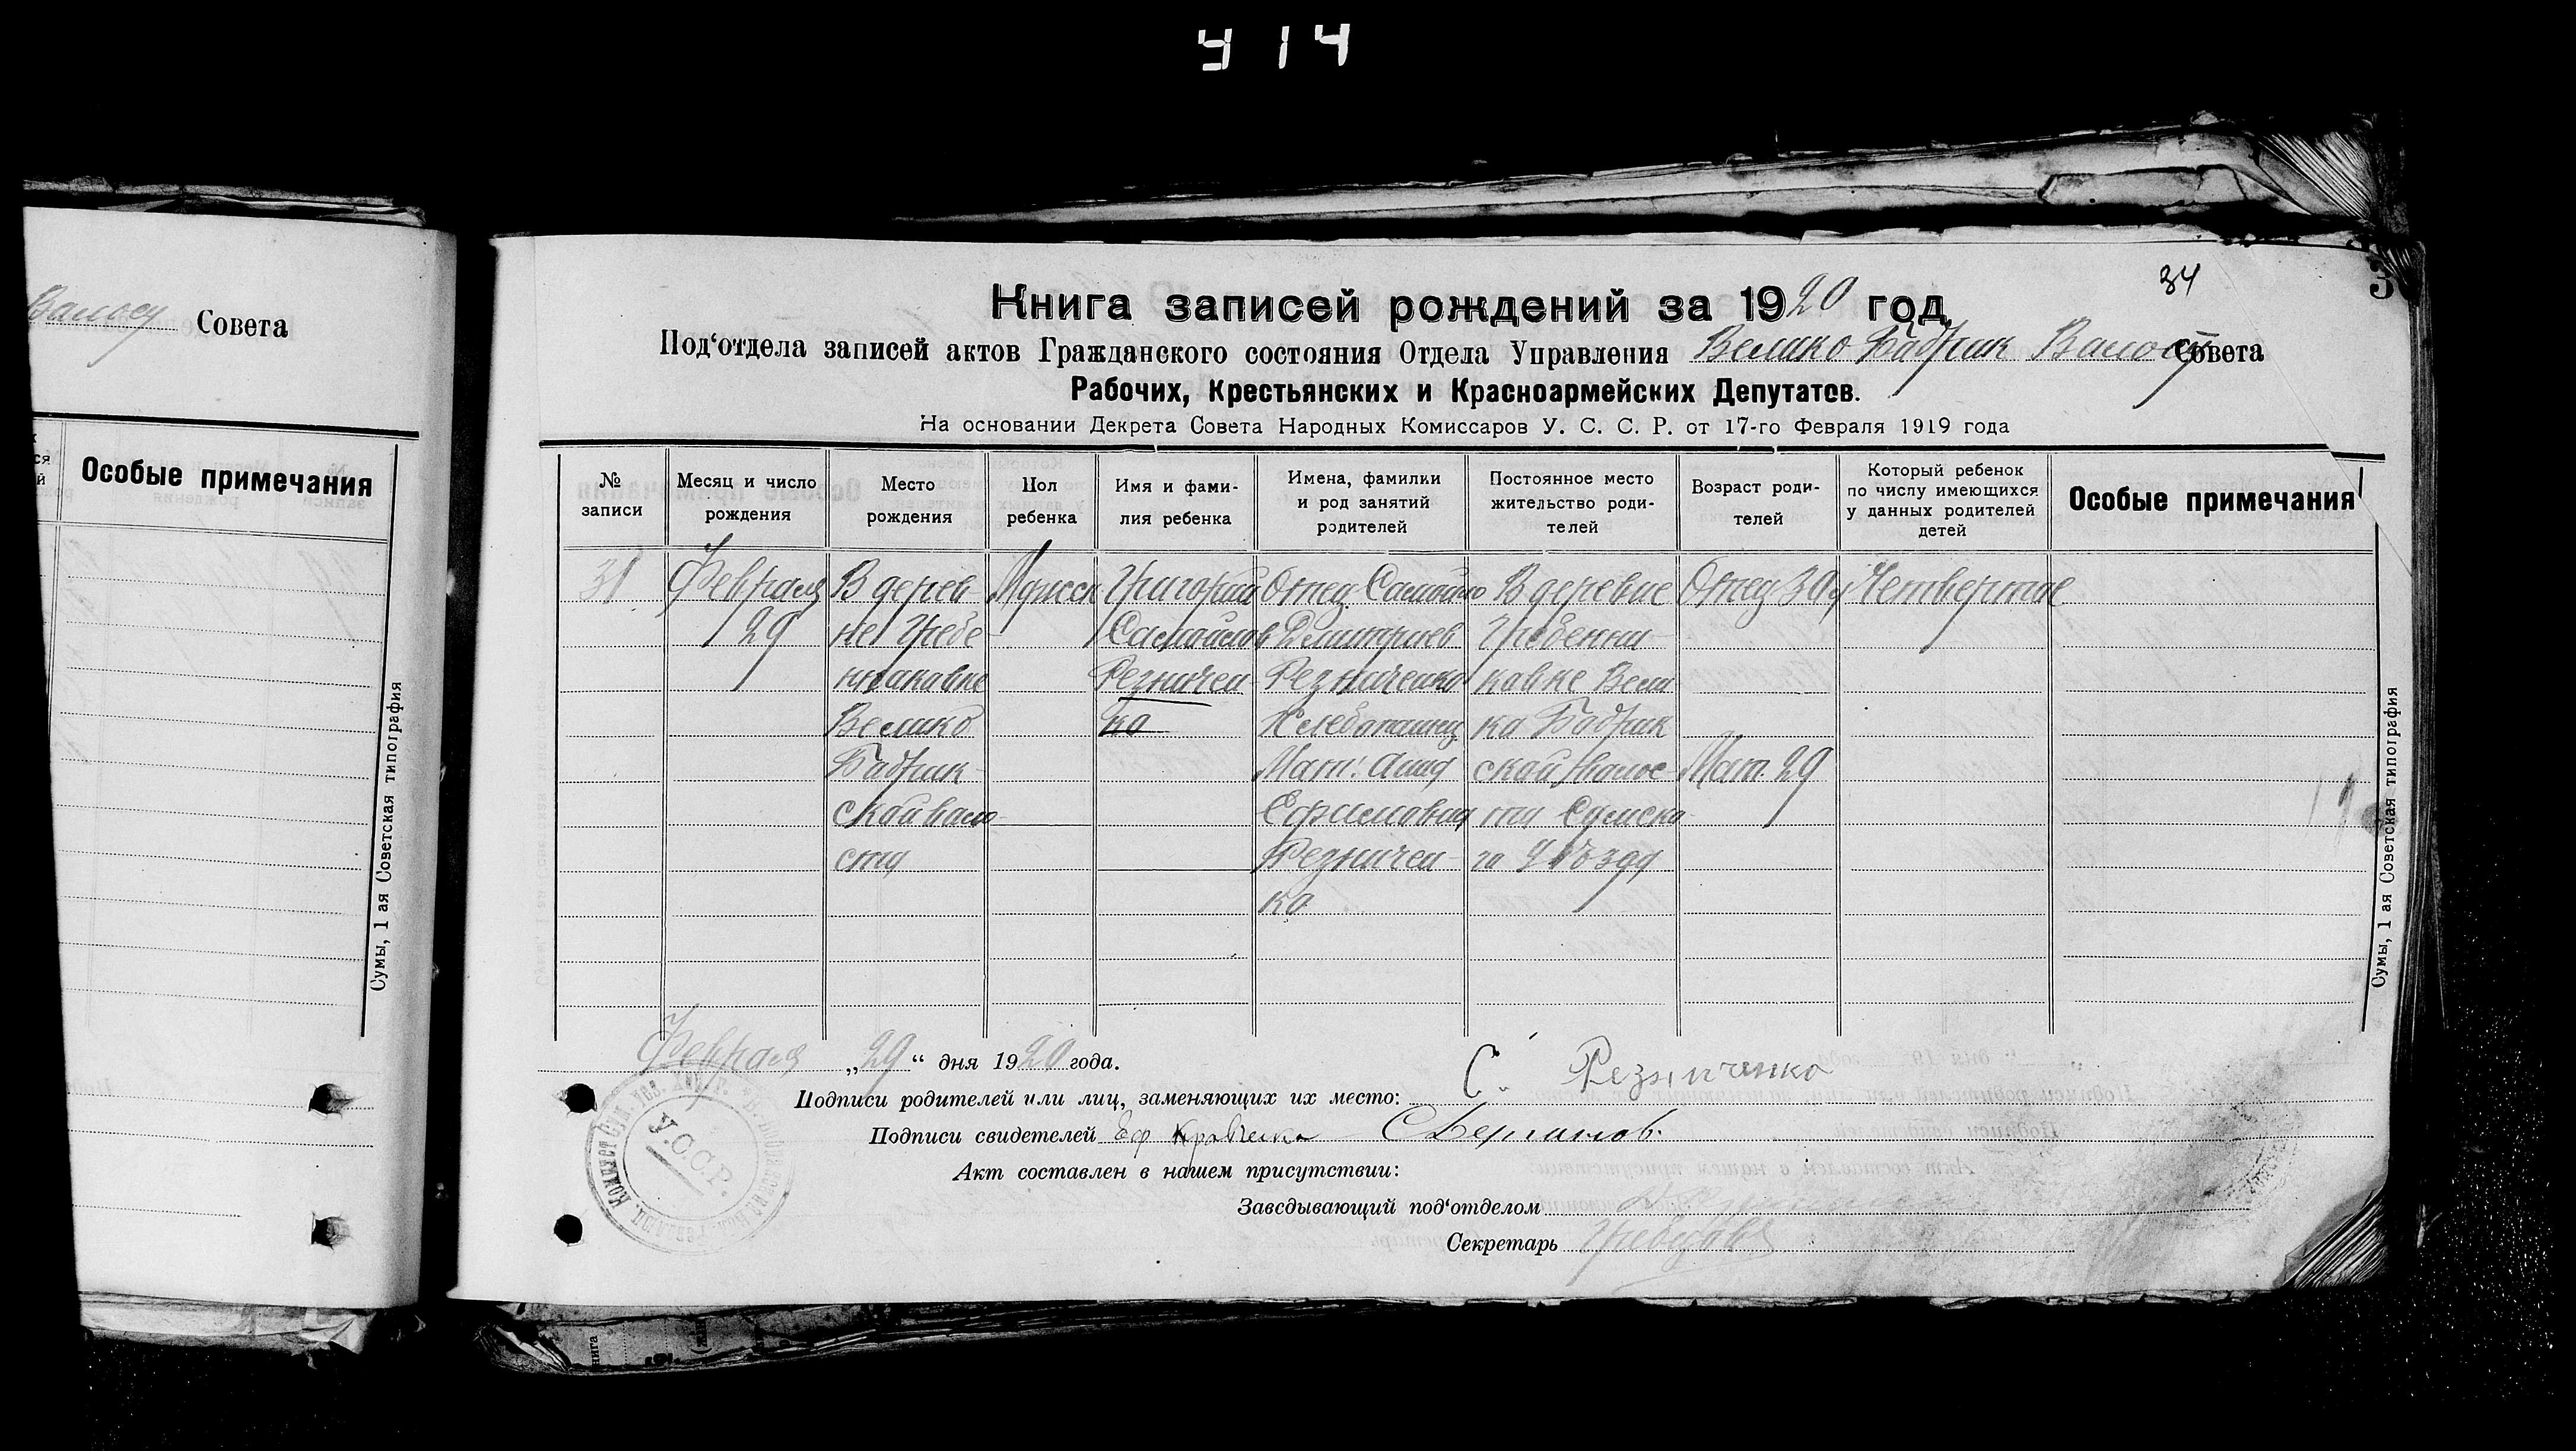 У 14
Валосу Совета
Особые примечания
Сумы, 1 ая Советская типография
34
Книга записей рождений за 1920 год
Под‘отдела записей актов Гражданского состояния Отдела Управления Велико Бабрик Валосу Совета
Рабочих, Крестьянских и Красноармейских Депутатов.
На основании Декрета Совета Народных Комиссаров У. С. С. Р. от 17-го Февраля 1919 года
№ записи
Месяц и число рождения
Место рождения
Пол ребенка
Имя и фами-
лия ребенка
Имена, фамилки
и род занятий
родителей
Постоянное место
жительство роди-
телей
Возраст роди-
телей
Который ребенок
по числу имеющихся
у данных родителей
детей
Особые примечания
31
Февраля
29
В дерев-
не Гребе
ннакавке
Велико
Бабрик-
скай вало
сти
Мужск
Григорий
Самойлов
Резничен-
ко
Отец Самойло
Дмитриев
Резниченко
Хлебапашец
Мат. Анна
Ефимовна
Резничен-
ко
В деревне
Гребенни-
кавке Вели
ка Бабрик
скай валос-
ти Сумска-
га Уѣзда
Отец 30
Мат. 29
Четвертае
Февраля „29“ дня 1920 года.
Подписи родителей или лиц, заменяющих их место: С. Резниченко
Подписи свидетелей Еф Кравченко
Акт составлен в нашем присутствии:
Заведывающий под‘отделом
Секретарь
У.С.С.Р.
Сумы, 1 ая Советская типография